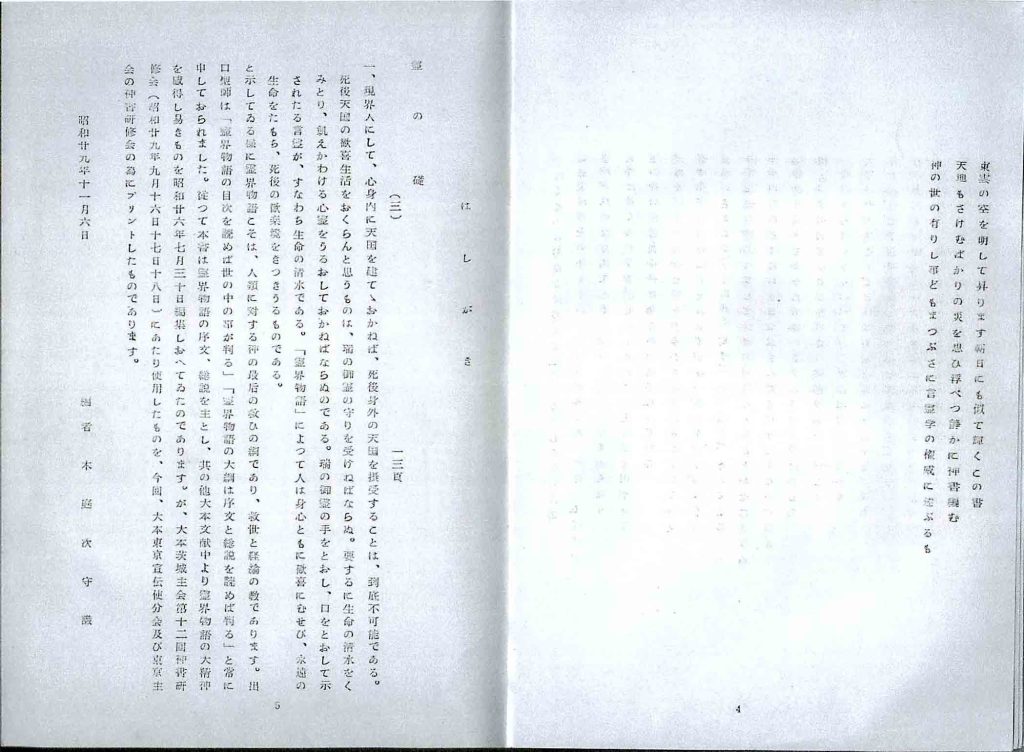 東雲の空を明して昇ります朝日にも似て輝くこの書
天地もさけむばかりの災を思ひ浮べつ静かに神書編む
神の世の有りし事どもまつぶさに言霊学の権威に述ぶるも
4
はしがき
霊の礎 (三) 一三頁
一、現界人にして、心身内に天国を建てゝおかねば、死後身外の天国を摂受することは、到底不可能である。
死後天国の歓喜生活をおくらんと思うものは、瑞の御霊の守りを受けねばならぬ。要するに生命の清水をく
みとり、飢えかわける心霊をうるおしておかねばならぬのである。瑞の御霊の手をとおし、口をとおして示
されたる言霊が、すなわち生命の清水である。「霊界物語」によつて人は身心ともに歓喜にむせび、永遠の
生命をたもち、死後の歓楽境をきづきうるものである。
と示してゐる様に霊界物語こそは、人類に対する神の最后の救ひの綱であり、救世と経綸の教であります。出
口聖師は「霊界物語の目次を読めば世の中の事が判る」「霊界物語の大綱は序文と総説を読めば判る」と常に
申しておられました。従つて本書は霊界物語の序文、総説を主とし、其の他大本文献中より霊界物語の大精神
を感得し易きものを昭和廿六年七月三十日編集しおへてゐたのであります。が、大本茨城主会第十二回神書研
修会(昭和廿九年九月十六日十七日十八日)にあたり使用したものを、今回、大本東京宣伝使分会及び東京主
会の神書研修会の為にプリントしたものであります。
昭和廿九年十一月六日
編者 木庭次守 識
5